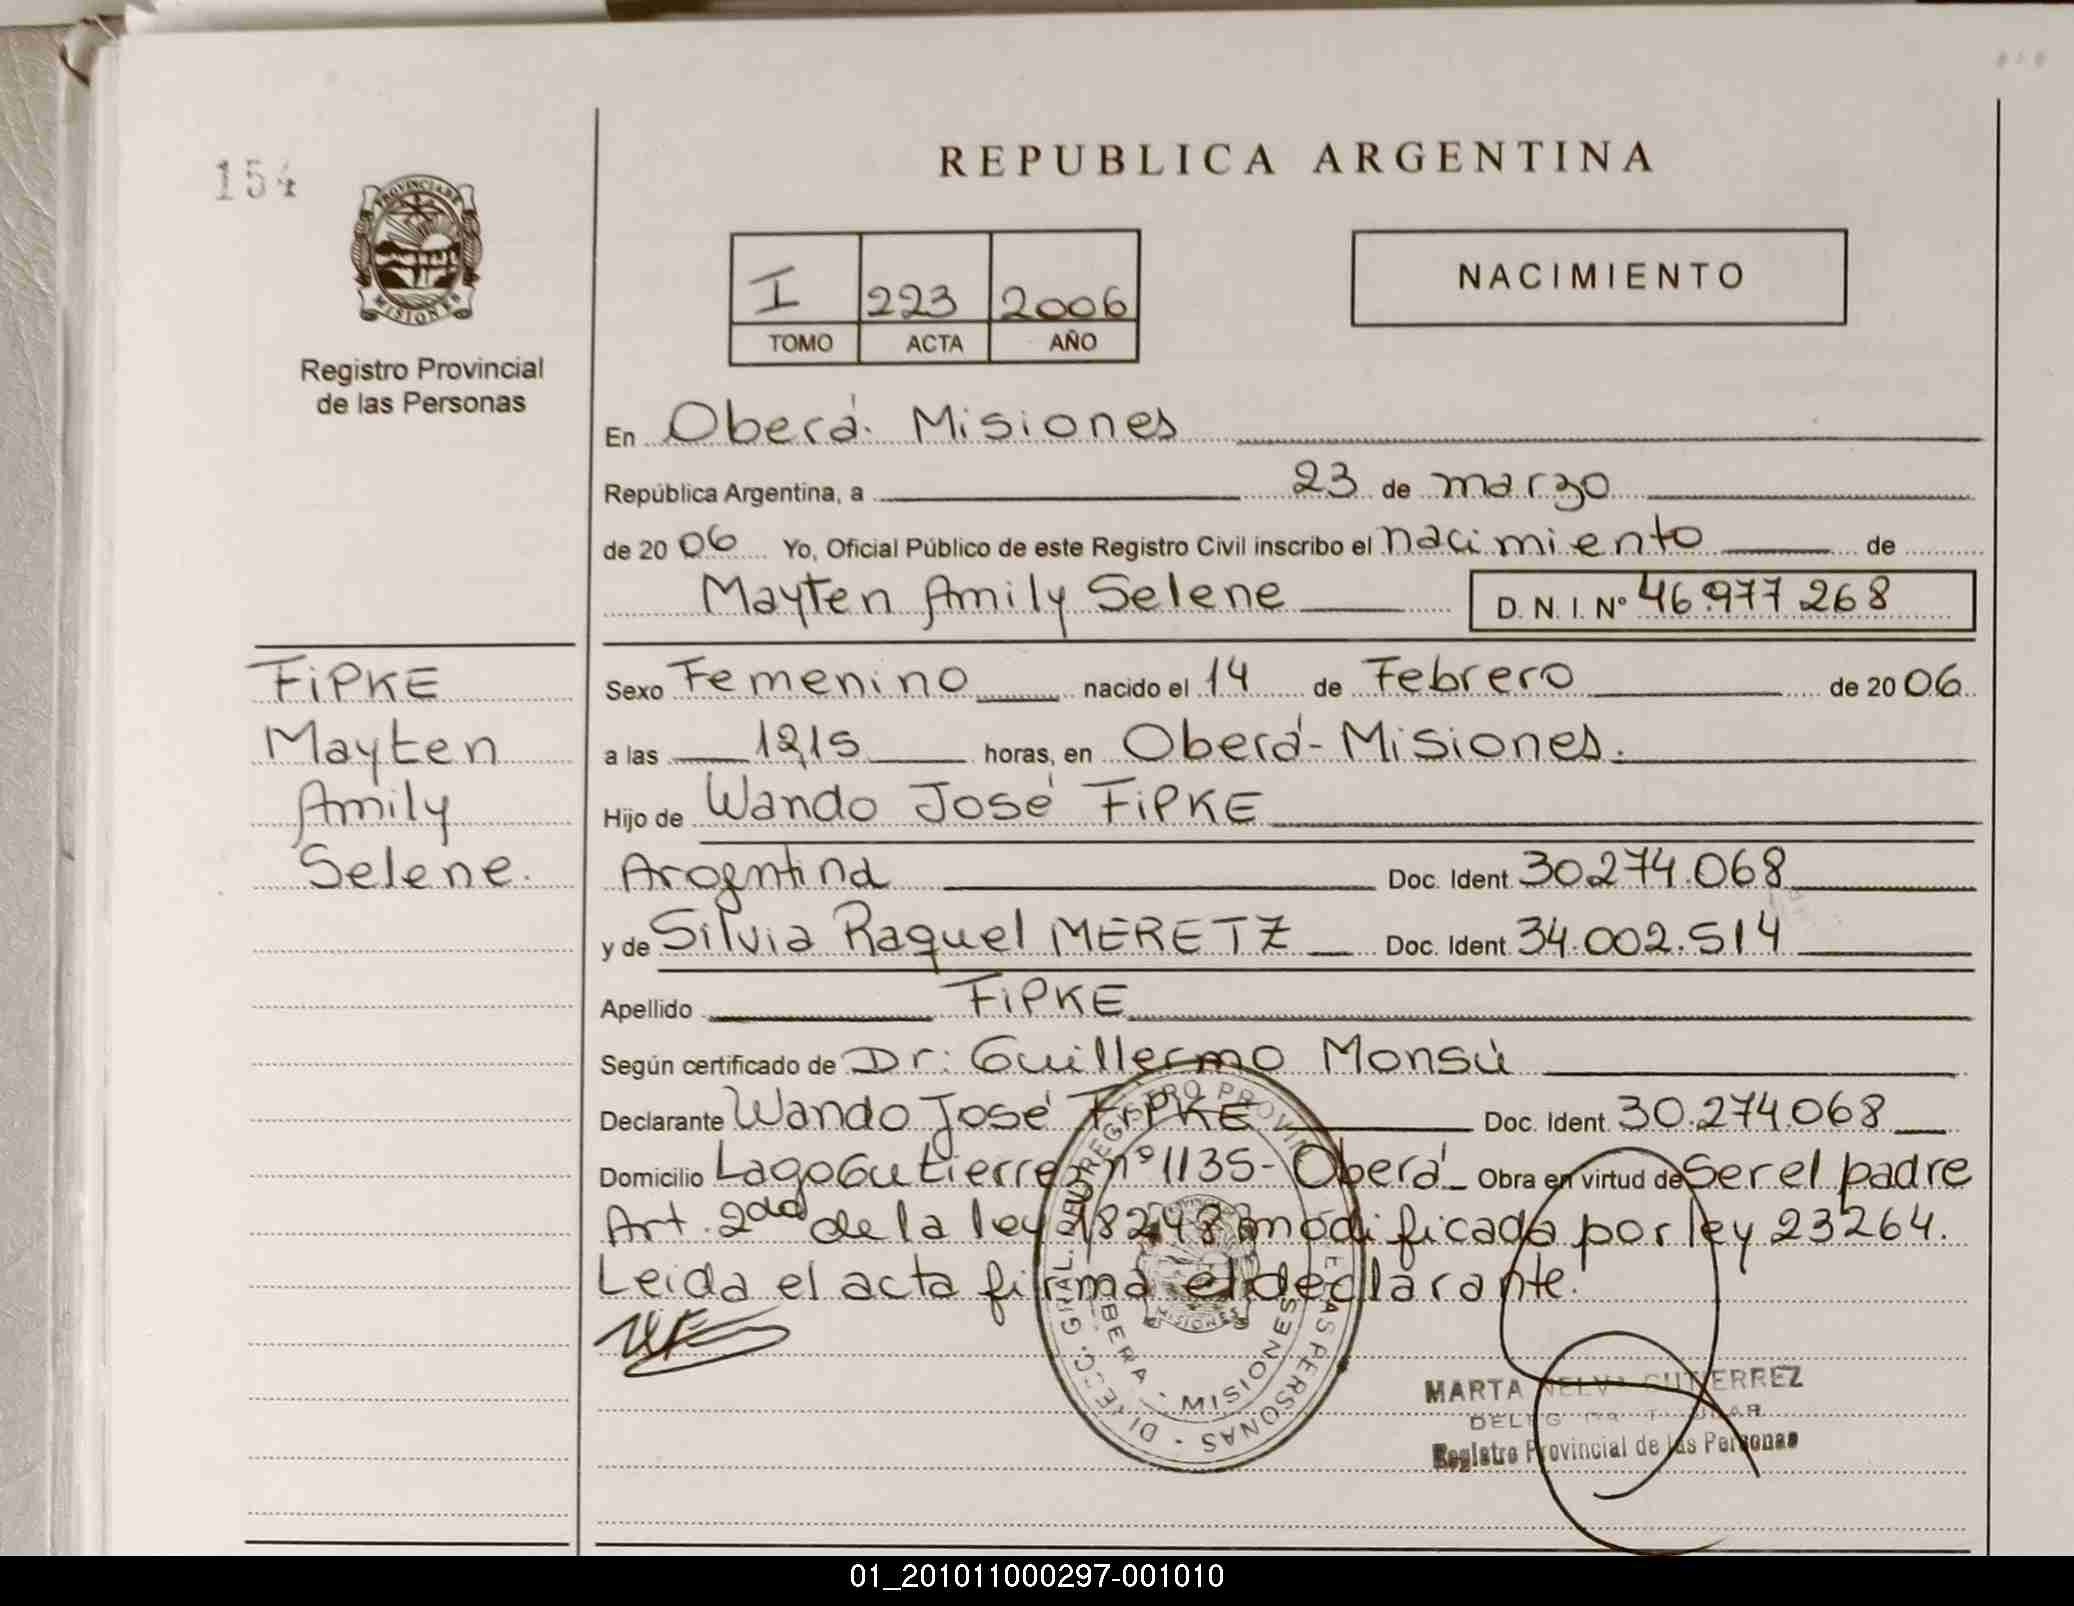 154
PROVINCIA DE
MISIONES
Registro Provincial
de las Personas
REPUBLICA ARGENTINA
I 223 2006
TOMO ACTA AÑO
NACIMIENTO
En Oberá. Misiones
República Argentina, a 23 de marzo
de 20 06 Yo, Oficial Público de este Registro Civil inscribo el nacimiento de
Mayten Amily Selene D. N. I. Nº 46.977 268
FiPKE
Mayten
Amily
Selene.
Sexo Femenino nacido el 14 de Febrero de 20 06
a las 12,15 horas, en Oberá - Misiones.
Hijo de Wando José FiPKE
Arogntina Doc. Ident. 30.274.068
y de Silvia Raquel MERETZ Doc. Ident. 34.002.514
Apellido FiPKE
Según certificado de Dr: Guillermo Monsú
Declarante Wando José FiPKE Doc. Ident. 30.274.068
Domicilio Lago Gutierrez nº 1135 - Oberá Obra en virtud de Ser el padre
Art. 2da de la ley 18248 modificada por ley 23264.
Leida el acta firma el declarante.
DIRECC. GRAL. DEL REGISTRO PROVINCIAL DE LAS PERSONAS
OBERA - MISIONES
MISIONES
MARTA NELVA GUTIERREZ
Registro Provincial de las Personas
01_201011000297-001010